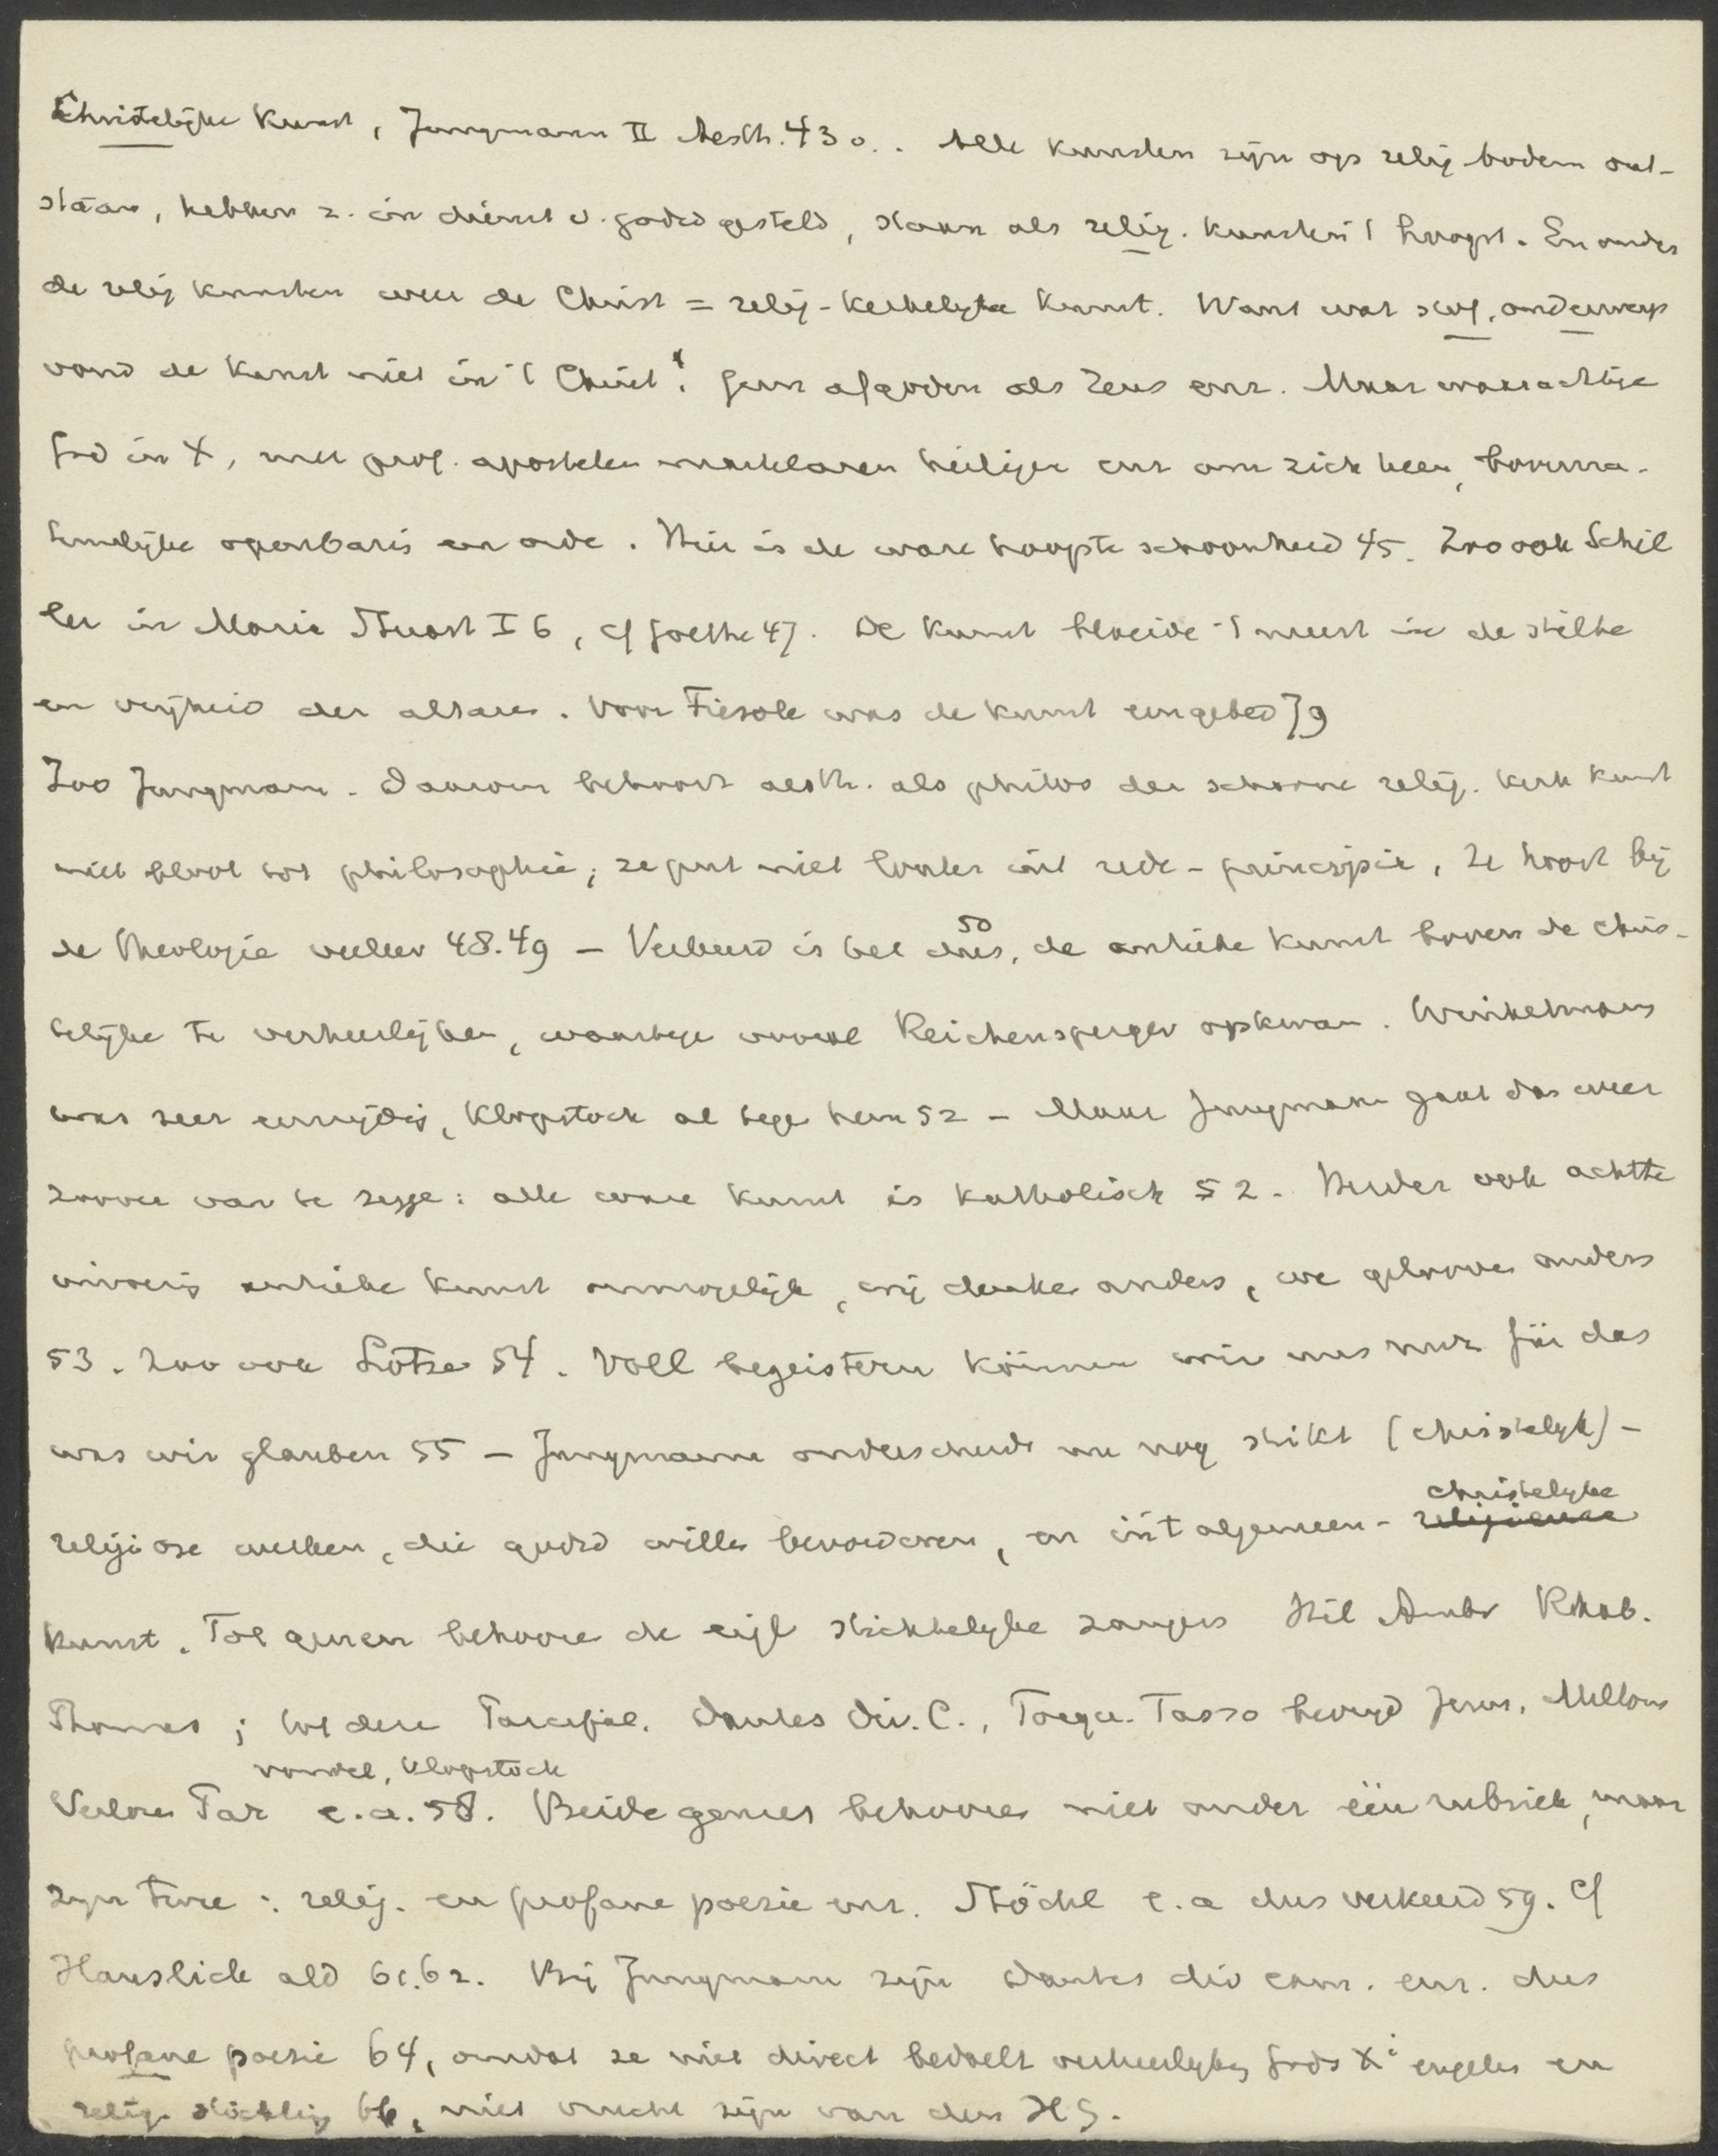 Christelijke Kunst, Jungmann II Aesth. 430.. Alle kunsten zijn op relig bodem ont-
staan, hebben z. in dienst v. godsd gesteld, staan als relig. kunsten 't hoogst. En onder
de relig kunsten weer de Christ = relig-kerkelyke kunst. Want wat stof, onderwerp
vond de kunst niet in 't Christ! Geen afgoden als Zeus enz. Maar waarachtige
God in X, met prof. apostelen martelaren heiligen enz om zich heen, bovenna-
tuurlijke openbaring en orde. Hier is de ware hoogste schoonheid 45. Zoo ook Schil
ler in Maria Stuart I 6, cf Goethe 47. De kunst bloeide 't meest in de stilte
en vrijheid der altaren. Voor Fiesole was de kunst een gebed 79
Zoo Jungmann. Daarom behoort aesth. als philos der schoone relig. kerk kunst
niet bloot tot philosophie; ze put niet louter uit rede-principia, ze hoort bij
de Theologie veeleer 48.49 – Verkeerd is het dus, 50 de antieke kunst boven de chris-
telijke te verheerlijken, waartegen vooral Reichensperger opkwam. Winkelmann
was zeer eenzijdig, Klopstock al tegen hem 52 – Maar Jungmann gaat dan weer
zoover van te zegge: alle ware kunst is katholisch 52. Herder ook achtte
invoering antieke kunst onmogelijk, wij denken anders, we gelooven anders
53. Zoo ook Lotze 54. Voll begeistern können wir uns nur für das
was wir glauben 55 – Jungmann onderscheidt nu nog strikt (christelyk) -
religiose werken, die godsd willen bevorderen, en in 't algemeen - christelyke
kunst. Tot genen behoore de eigl stichtelyke zangers Hil Ambr Rhab.
Thomas; tot deze Parcifal. Dantes Div. C., Torqu. Tasso bevryd Jerus, Miltons
vondel, Klopstock
Verloren Par e.a. 58. Beide genres behooren niet onder één rubriek, maar
zyn twee: relig. en profane poezie enz. Stöckl e.a dus verkeerd 59. Cf
Hanslick ald 61.62. Bij Jungmann zijn Dantes div com. enz. dus
profane poezie 64, omdat ze niet direct bedoelt verheerlyking Gods X' engelen en
relig. stichting 66, niet vrucht zijn van den HG.